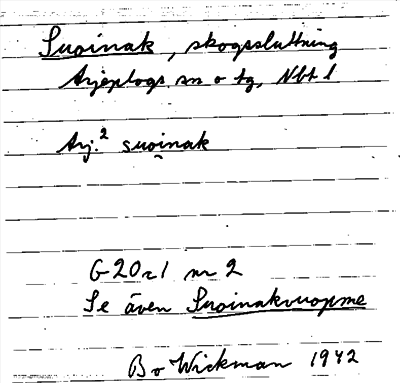 Suoinak, skogssluttning
Arjeplogs sn o tg, Nbt l
Arj.² suọinak
G20a1 nr 2
Se även Suoinakvuopme
Bo Wickman 1942